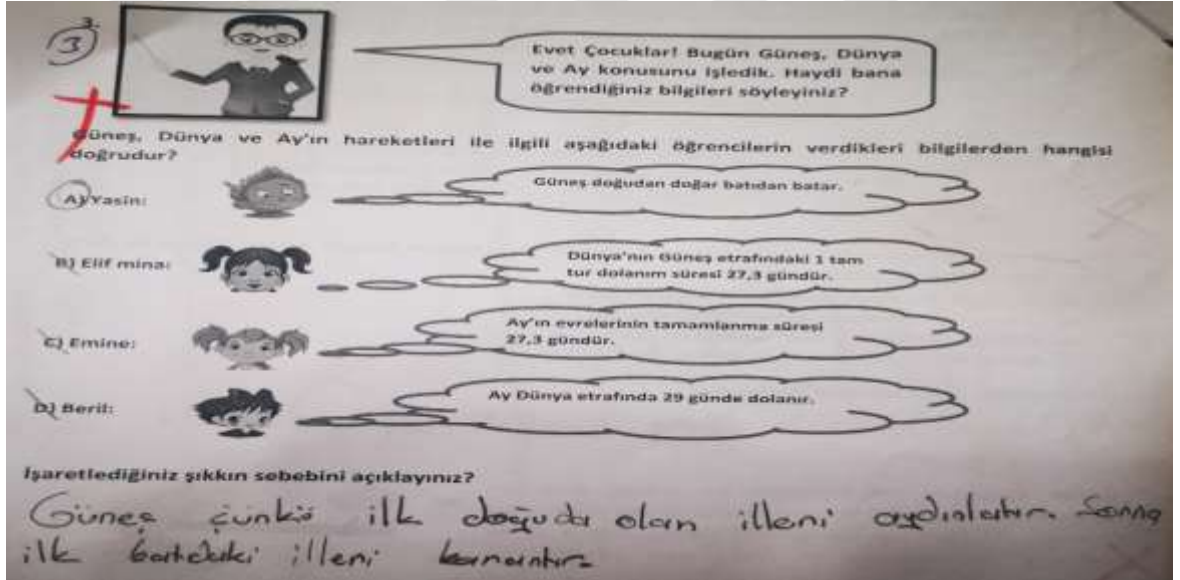 3.
3
Evet Çocuklar! Bugün Güneş, Dünya
ve Ay konusunu işledik. Haydi bana
öğrendiğiniz bilgileri söyleyiniz?
Güneş, Dünya ve Ay'ın hareketleri ile ilgili aşağıdaki öğrencilerin verdikleri bilgilerden hangisi
doğrudur?
A) Yasin:
Güneş doğudan doğar batıdan batar.
B) Elif mina:
Dünya'nın Güneş etrafındaki 1 tam
tur dolanım süresi 27,3 gündür.
C) Emine:
Ay'ın evrelerinin tamamlanma süresi
27,3 gündür.
D) Beril:
Ay Dünya etrafında 29 günde dolanır.
İşaretlediğiniz şıkkın sebebini açıklayınız?
Güneş çünkü ilk doğuda olan illeri aydınlatır. Sonra
ilk batıdaki illeri